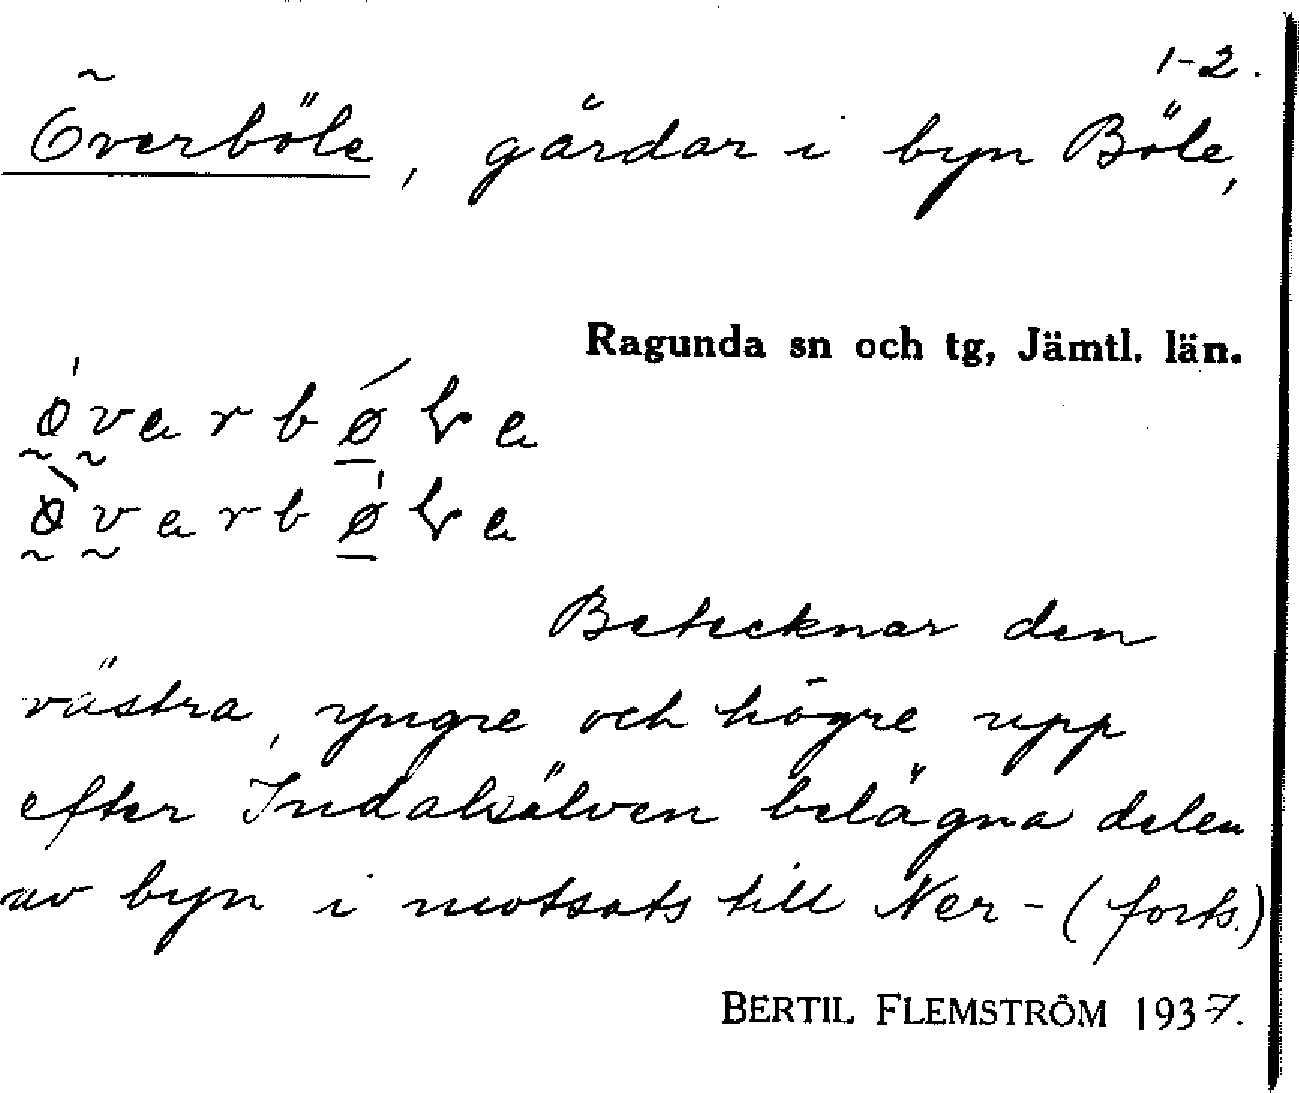 1-2.
Överböle, gårdar i byn Böle,
Ragunda sn och tg, Jämtl. län.
Betecknar den
västra, yngre och högre upp
efter Indalsälven belägna delen
av byn i motsats till Ner- (forts.)
BERTIL FLEMSTRÖM 1937.